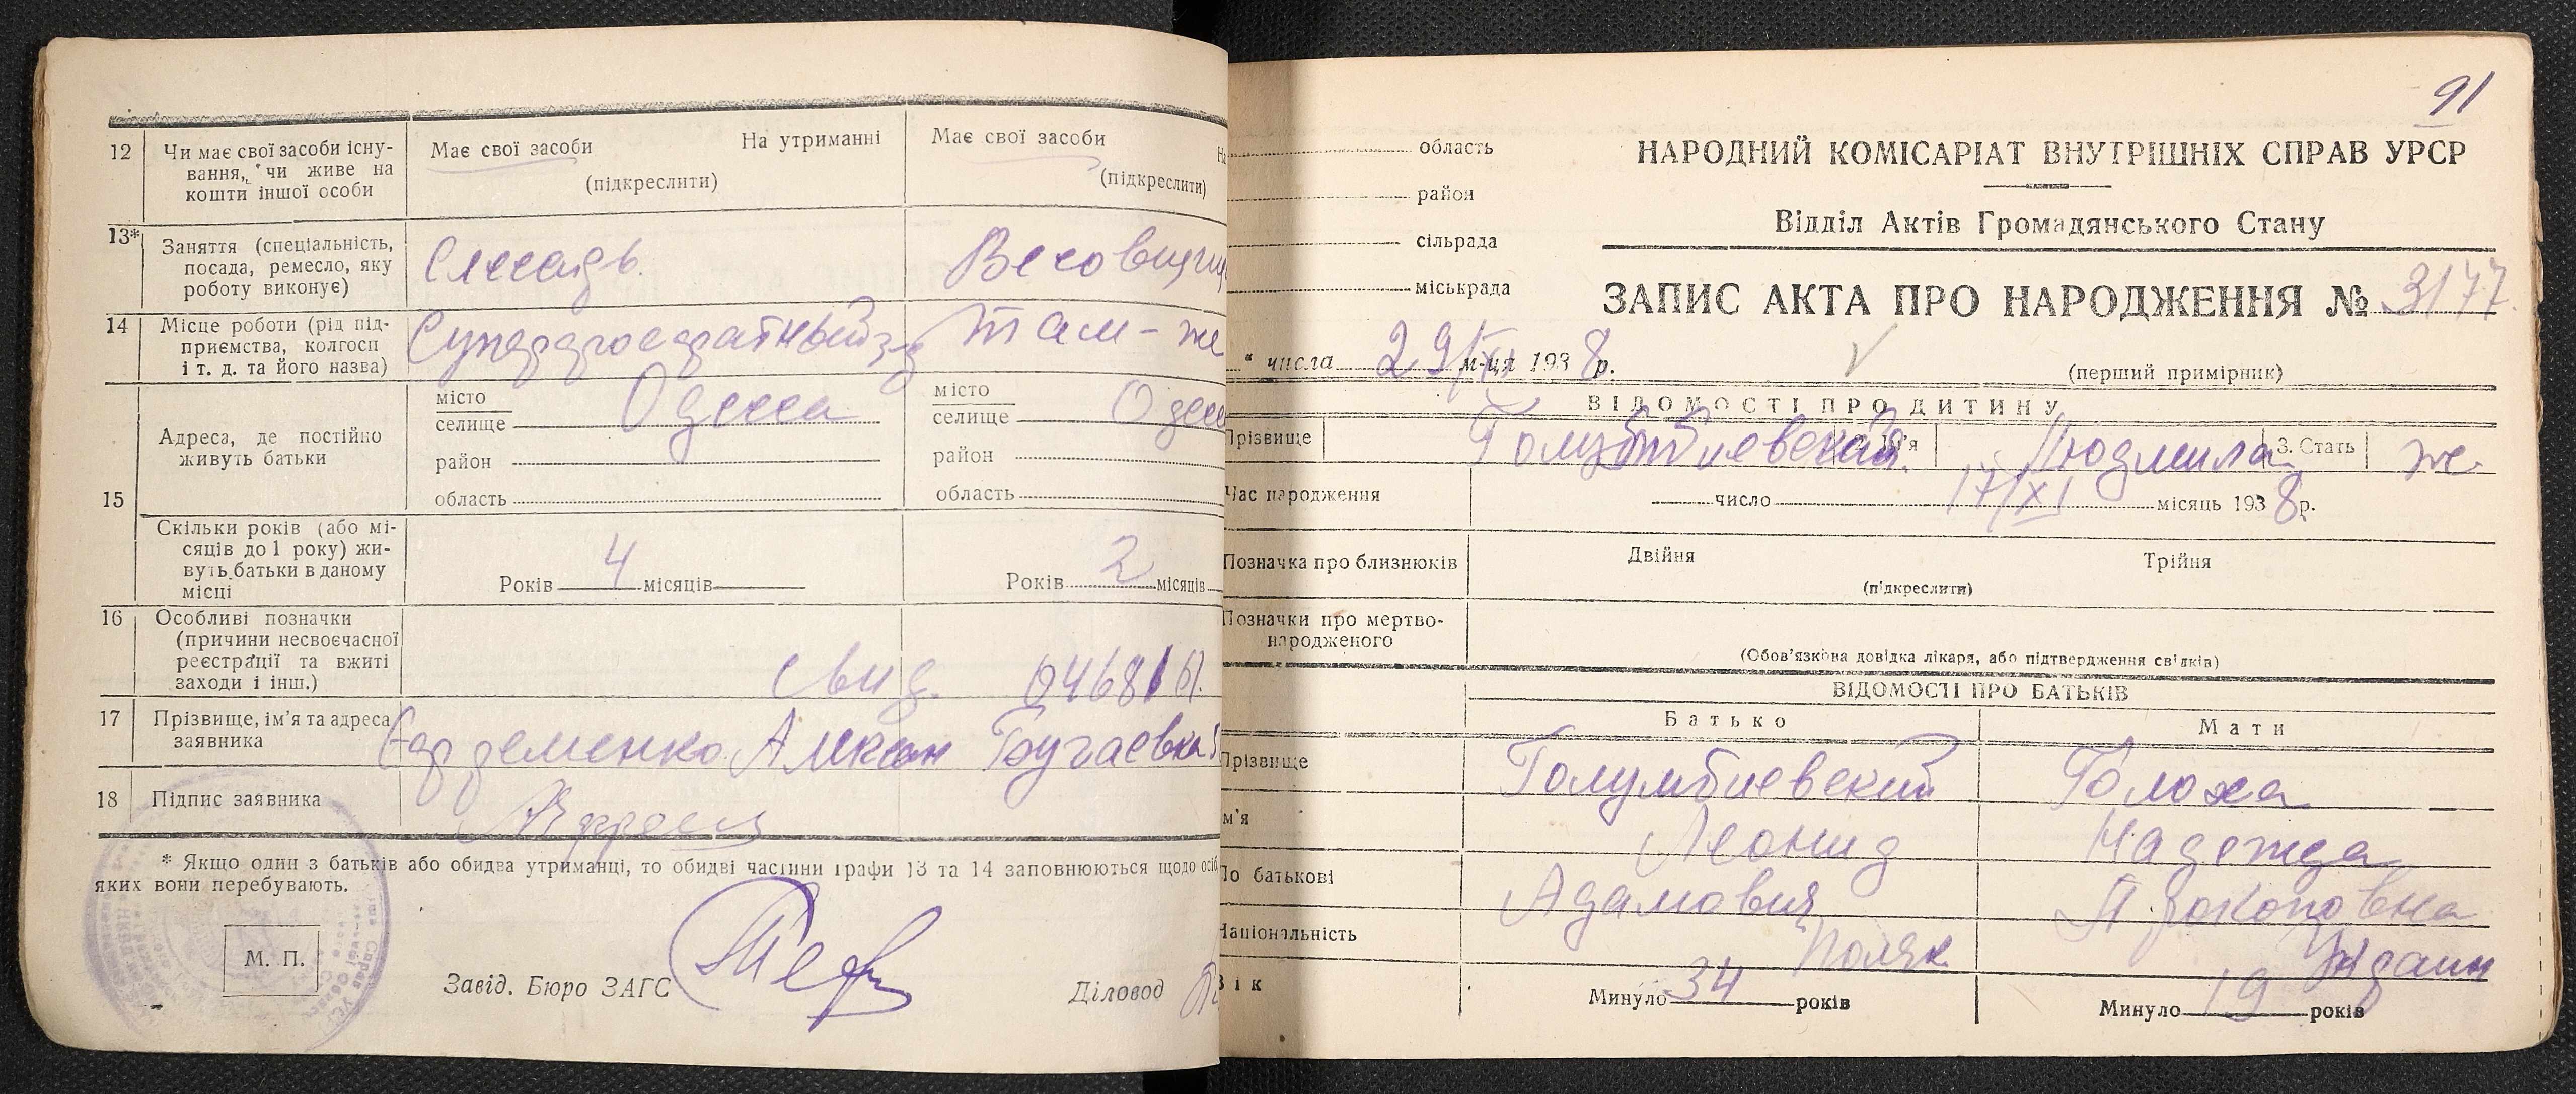 12
Чи має свої засоби існу-
вання, чи живе на
кошти іншої особи
Має свої засоби
На утриманні
(підкреслити)
Має свої засоби
(підкреслити)
13*
Заняття (спеціальність,
посада, ремесло, яку
роботу виконує)
Слесарь
Весовщиц
14
Місце роботи (рід під-
приємства, колгосп
і т. д. та його назва)
Суперфосфатный з.
Там-же
15
Адреса, де постійно
живуть батьки
місто
селище
Одесса
район
область
місто
селище
Одесс
район
область
Скільки років (або мі-
сяців до 1 року) жи-
вуть батьки в даному
місці
Років 4 місяців
Років 2 місяців
16
Особливі позначки
(причини несвоєчасної
реєстрації та вжиті
заходи і інш.)
свид. 046816
17
Прізвище, ім'я та адреса
заявника
Бугаевка
18
Підпис заявника
* Якщо один з батьків або обидва утриманці, то обидві частини графи 13 та 14 заповнюються щодо осіб
яких вони перебувають.
М. П.
Завід. Бюро ЗАГС
Діловод
91
область
район
сільрада
міськрада
НАРОДНИЙ КОМІСАРІАТ ВНУТРІШНІХ СПРАВ УРСР
Відділ Актів Громадянського Стану
ЗАПИС АКТА ПРО НАРОДЖЕННЯ № 3177
" числа 29/XI м-ця 1938 р.
(перший примірник)
ВІДОМОСТІ ПРО ДИТИНУ
Прізвище
Ім'я Людмила 3. Стать ж.
Час народження
число 17/XI місяць 1938 р.
Позначка про близнюків
Двійня
Трійня
(підкреслити)
Позначки про мертво-
народженого
(Обов'язкова довідка лікаря, або підтвердження свідків)
ВІДОМОСТІ ПРО БАТЬКІВ
Батько
Мати
Прізвище
Голумбиевский
Голоха
м'я
Леонид
Надежда
По батькові
Адамович
Прокоповна
Національність
Поляк
Украин
Вік
Минуло 34 років
Минуло 19 років